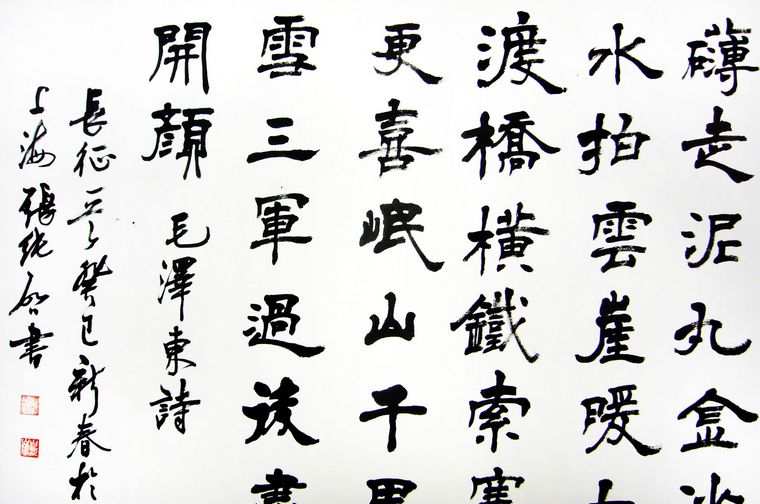 礴走泥丸金沙
水拍雲崖暖大
渡橋橫鐵索寒
更喜岷山千里
雪三軍過後盡
開顏 毛澤東詩
長征一首癸巳新春於
上海張純書